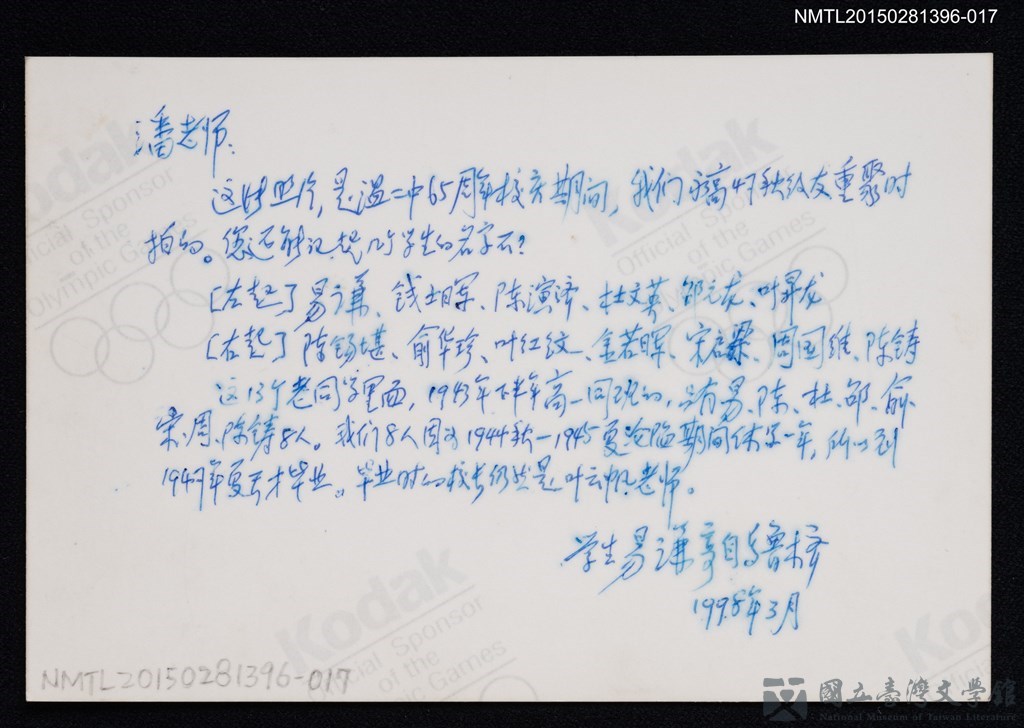 NMTL20150281396-017
潘老师:
这张照片，是温二中65周年校庆期间，我们高47秋级友重聚时
拍的。您还能记起几个学生的名字不？
[左起]易谦、钱士晖、陈演沛、杜文英、邹元龙、叶昇龙
[右起]陈锡堪、俞华珍、叶红纹、金若晖、宋启霖、周国维、陈铸
这13个老同学里面，1943年下半年高一同班的，只有易、陈、杜、邹、俞
宋、周、陈铸8人。我们8人因为1944秋—1945夏沦陷期间休学一年，所以到
1947年夏天才毕业。毕业时的校长仍然是叶云帆老师。
学生易谦寄自乌鲁木齐
1998年3月
Kodak
Official Sponsor
of the
Olympic Games
Kodak
Official Sponsor
of the
Olympic Games
Kodak
Official Sponsor
of the
Olympic Games
Kodak
NMTL20150281396-017
國立臺灣文學館
National Museum of Taiwan Literature